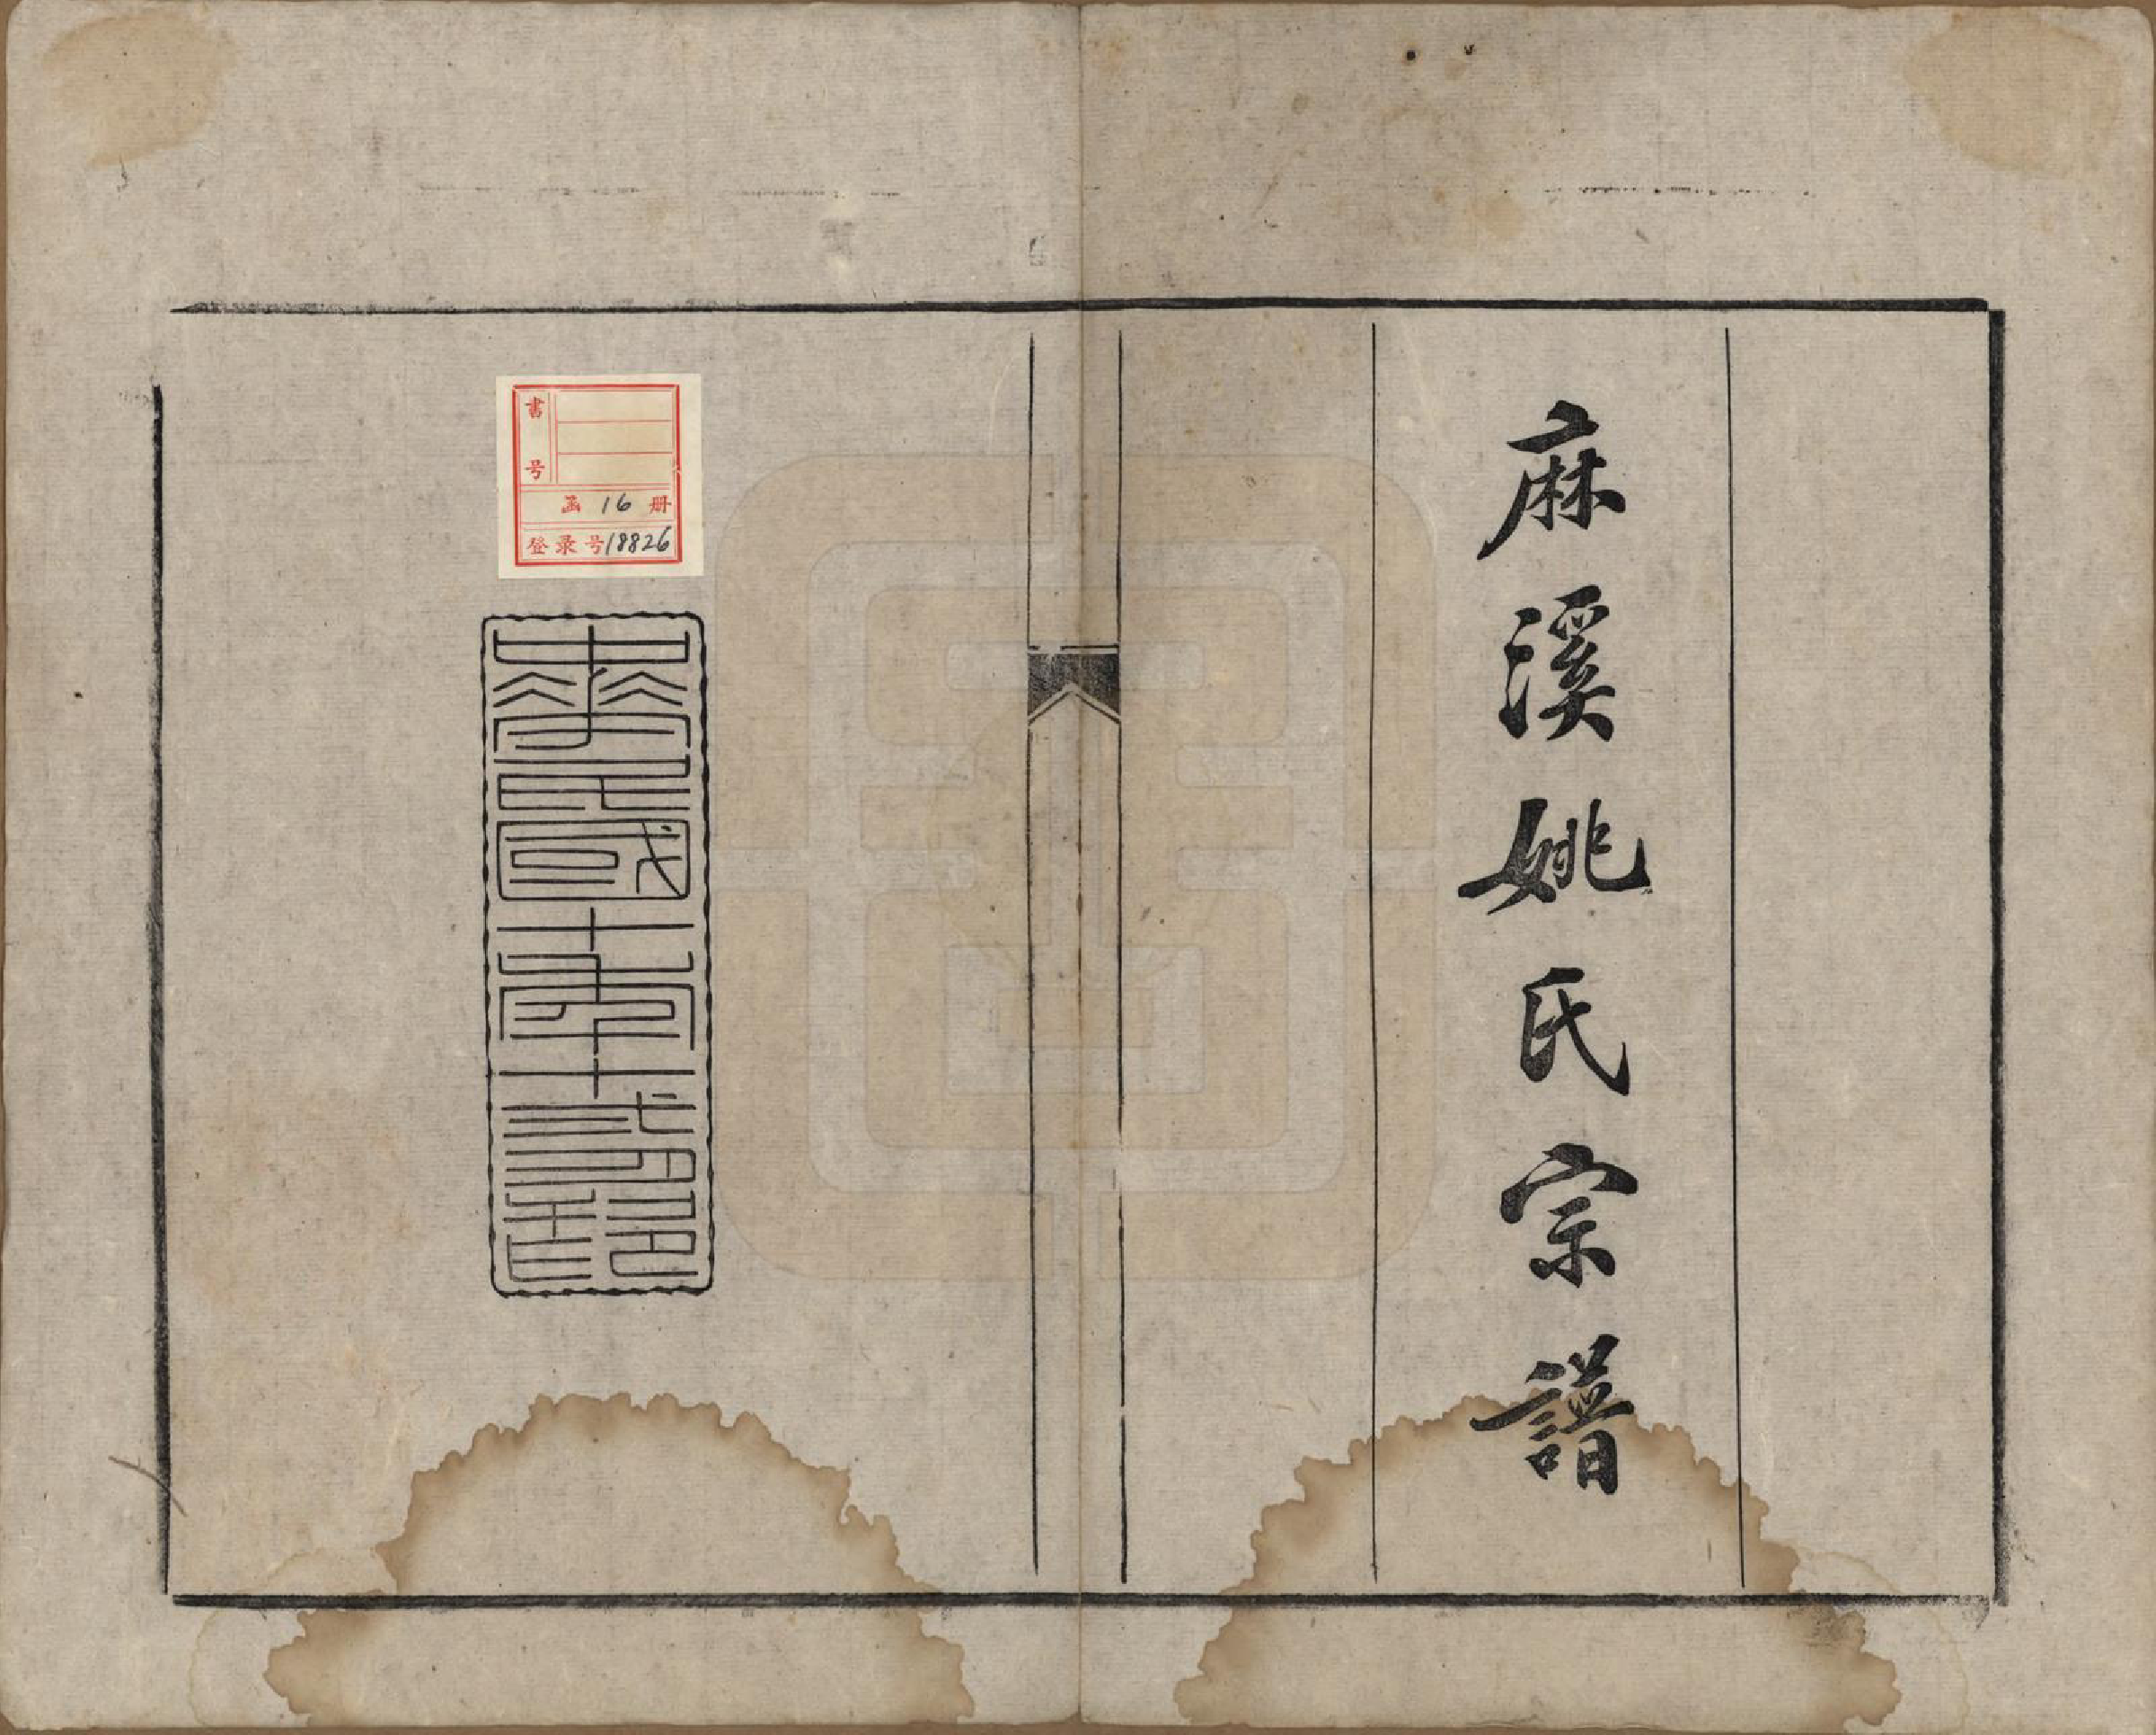 麻溪姚氏宗譜
書号
函 16 册
登录号18826
華民國十年十